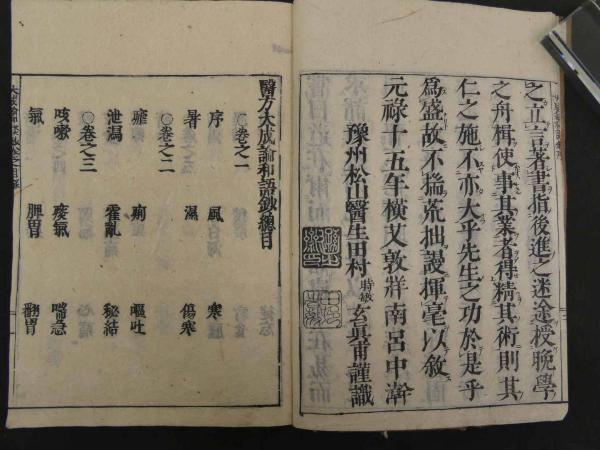 之立言著書指後進之迷途授晚學
之舟楫使事其業者得精其術則其
仁之施不亦大乎先生之功於是乎
爲盛故不揣荒拙謾揮毫以敘
元祿十五年橫艾敦牂南呂中澣
豫州松山醫生田村時敏玄真甫謹識
醫方大成論和語鈔總目
○卷之一
序 風 寒
暑 濕 傷寒
○卷之二
瘧 痢 嘔吐
泄瀉 霍亂 秘結
○卷之三
咳嗽 痰氣 喘急
氣 脾胃 翻胃